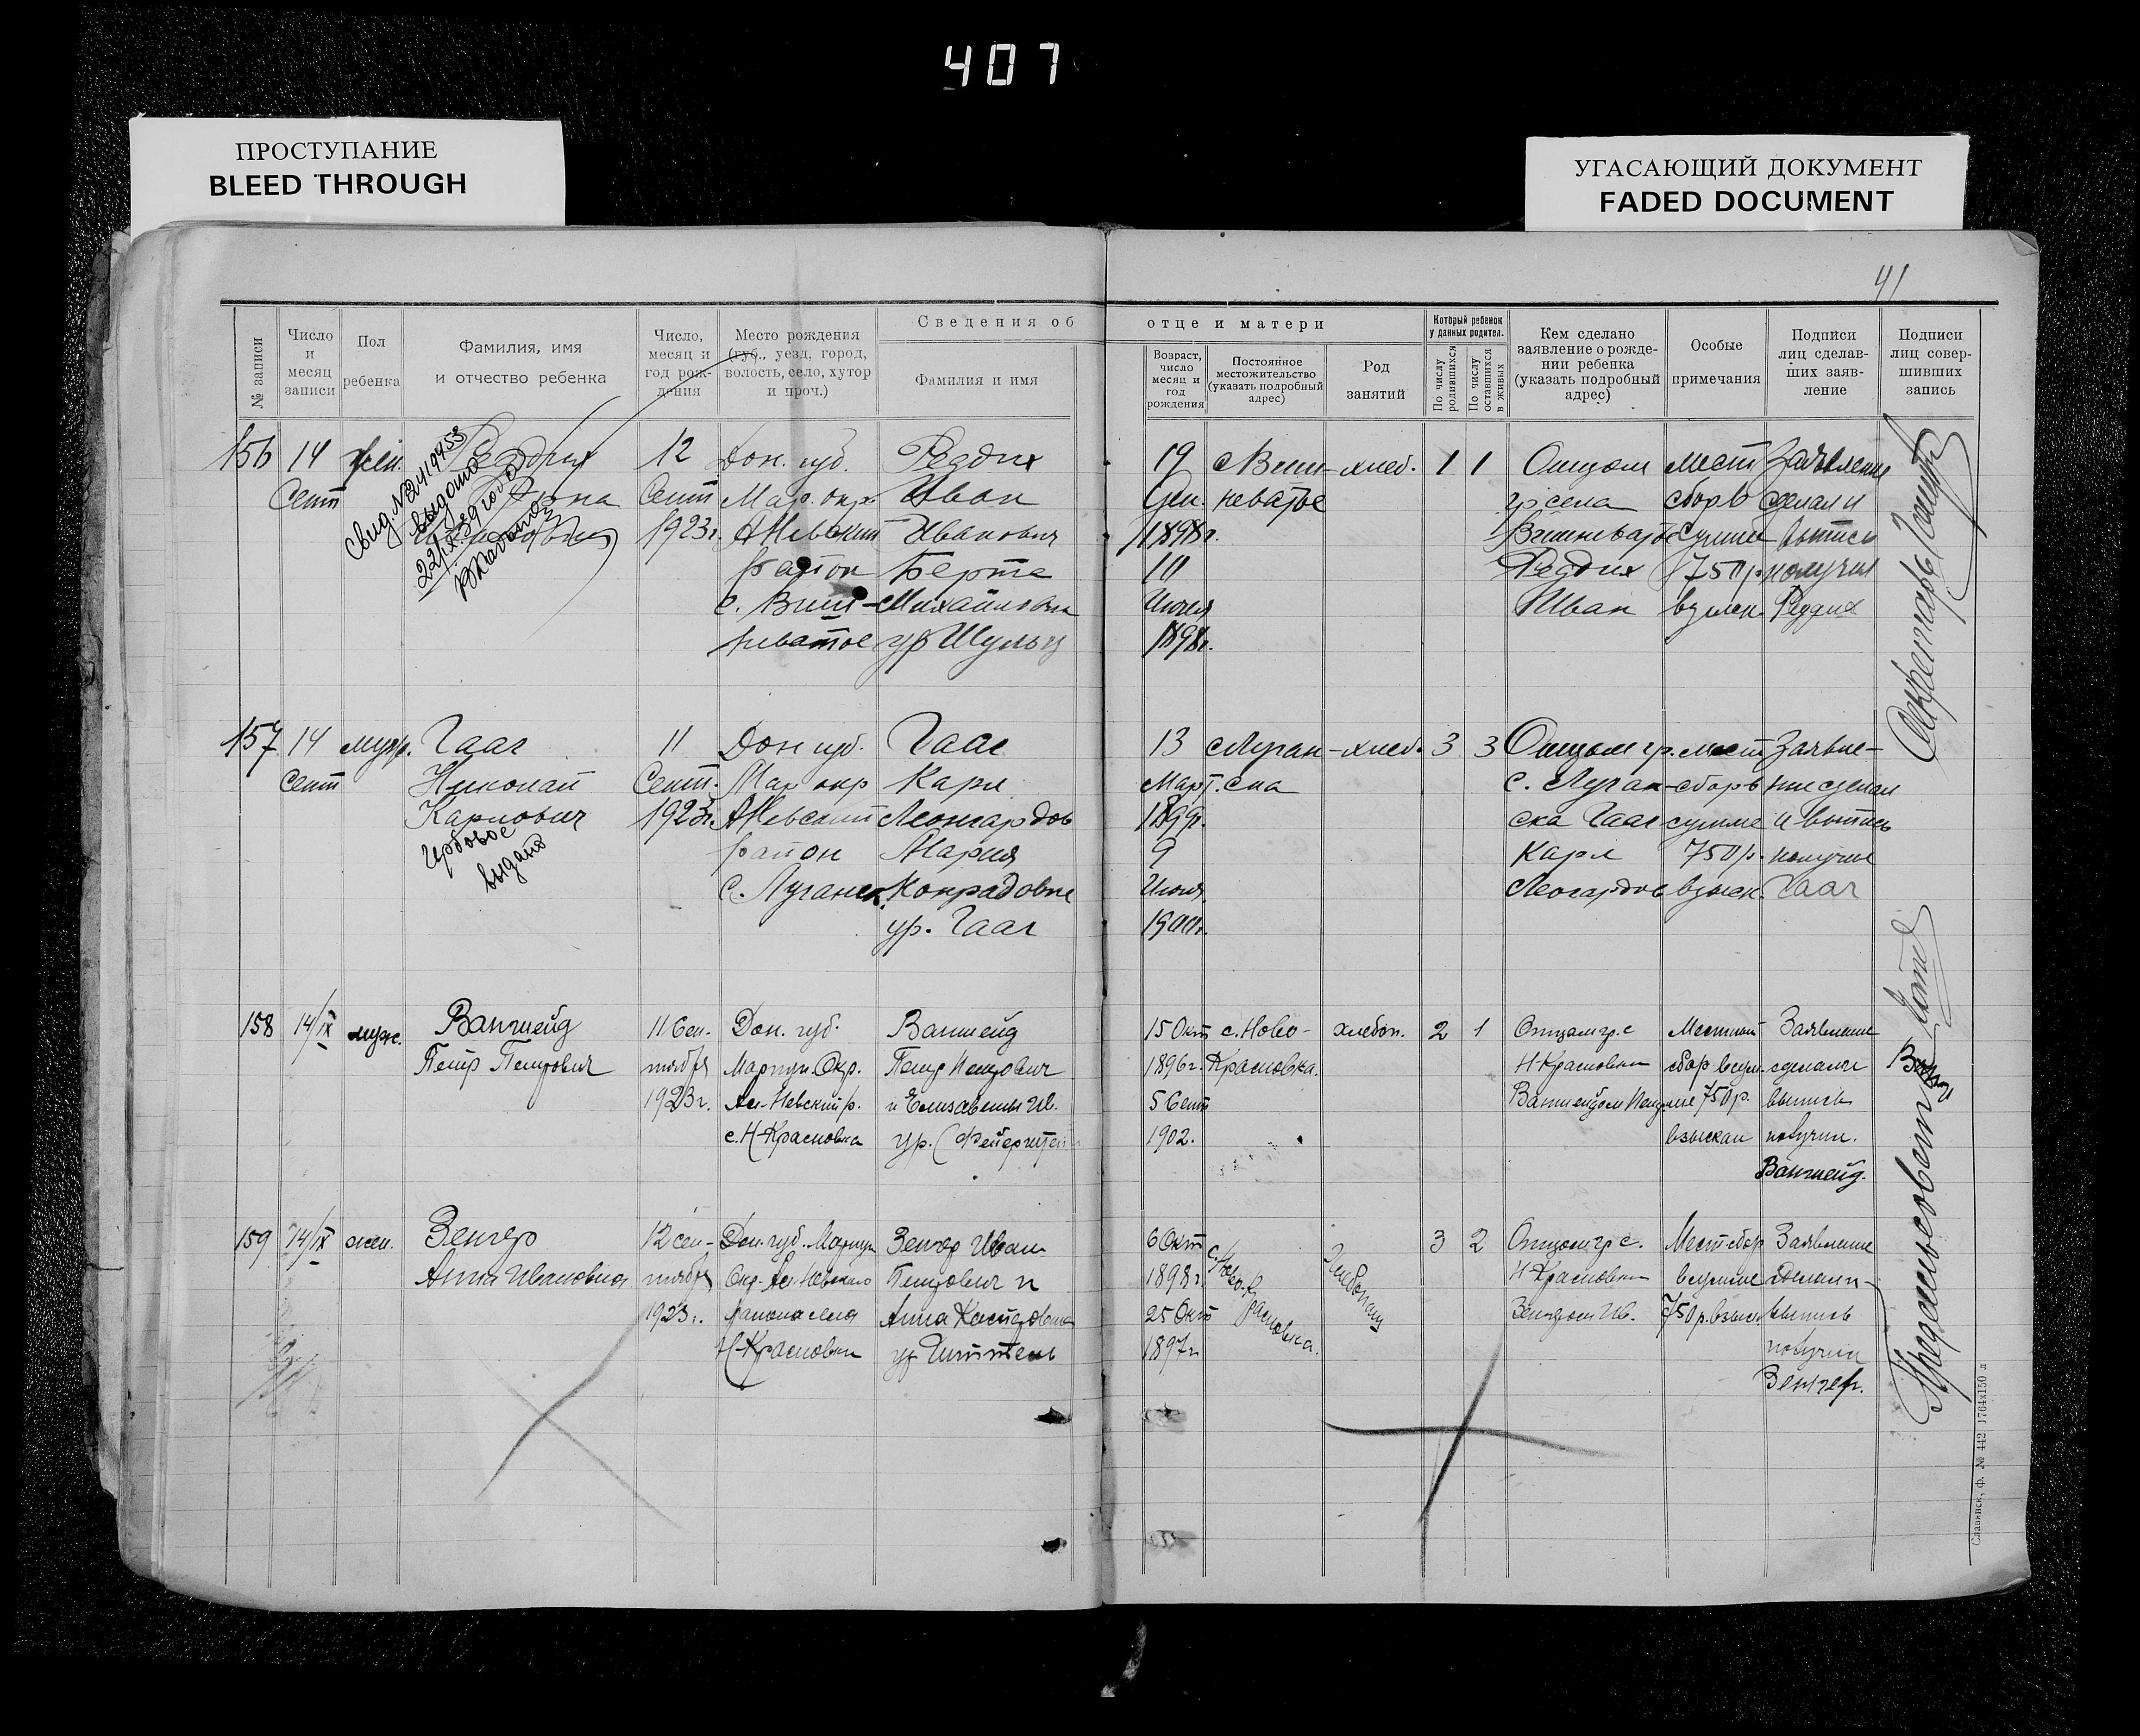 407
ПРОСТУПАНИЕ
BLEED THROUGH
УГАСАЮЩИЙ ДОКУМЕНТ
FADED DOCUMENT
41
№ записи
Число и месяц записи
Пол ребенка
Фамилия, имя и отчество ребенка
Число, месяц и год рождения
Место рождения (губ., уезд, город, волость, село, хутор и проч.)
Сведения об отце и матери
Фамилия и имя
Возраст, число месяц и год рождения
Постоянное местожительство (указать подробный адрес)
Род занятий
Который ребенок у данных родител.
По числу родившихся
По числу оставшихся в живых
Кем сделано заявление о рождении ребенка (указать подробный адрес)
Особые примечания
Подписи лиц сделавших заявление
Подписи лиц совершивших запись
156
14
Сент
жен.
Реддих
Свид.
выдано
12
Сент
1923г.
Дон. губ.
Мар. окр.
АНевский
район
с. Виш-
неватое
Реддих
Иван
Иванович
Берта
Михайловна
ур Шульц
19
Ген.
1898г.
10
Июня
1898г.
с Виш-
неватое
хлеб.
1
1
Отцом
гр села
Вишневатое
Реддих
Иван
мест
сбор в
сумме
750р.
взыск.
Заявление
сделал и
выпись
получил
Реддих
Секретарь
157
14
Сент
муж.
Гааг
Николай
Карлович
Гербовое
выдано
11
Сент.
1923г.
Дон губ.
Мар окр
АНевский
район
с. Луганск.
Гааг
Карл
Леонгардов
Мария
Конрадовна
ур. Гааг
13
Март.
1899г.
9
Июня
1900г.
с Луган-
ска
хлеб.
3
3
Отцом гр.
с. Луган-
ска Гааг
Карл
Леогардов
мест
сбор в
сумме
750р.
взыск.
Заявле-
ние сделал
и выпись
получил
Гааг
158
14/IX
муж.
Ваншейд
Петр Петрович
11 Сен-
тября
1923г.
Дон. губ.
Мариуп. Окр.
Ал-Невский р.
с. Н-Красновка
Ваншейд
Петр Петрович
и Елизавета Ив.
ур. (Фейерштейн
15 Окт
1896г.
5 Сент
1902.
с. Ново-
Красновка.
хлебоп.
2
1
Отцом гр. с
Н-Красновки
Ваншейдом
Местный
сбор в сум-
ме 750р.
взыскан
Заявление
сделал и
выпись
получил.
Ваншейд.
159
14/IX
жен.
Зенгер
Анна Ивановна
12 сен-
тября
1923г.
Дон. губ. Мариуп
Окр. Ал-Невского
района села
Н-Красновки
Зенгер Иван
Петрович и
Анна Касперовна
6 Окт
1898г.
25 Окт
1897г
с. Ново-К
расновка.
Хлебопаш
3
2
Отцом гр с.
Н-Красновки
Зенгером Ив.
Мест сбор
в сумме
750р. взыск.
Заявление
сделал и
выпись
получил
Зенгер.
Славянск, ф. № 442 1764х150 л